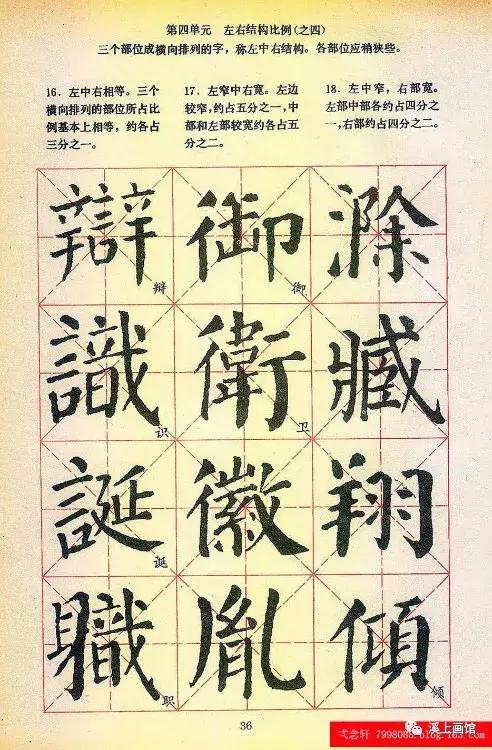 第四单元 左右结构比例(之四)
三个部位成横向排列的字，称左中右结构。各部位应稍狭些。
16．左中右相等。三个
横向排列的部位所占比
例基本上相等，约各占
三分之一。
17．左窄中右宽。左边
较窄，约占五分之一，中
部和左部较宽约各占五
分之二。
18．左中窄，右部宽。
左部中部各约占四分之
一，右部约占四分之二。
辯 御 滁
辩 御
識 衛 臧
识 卫
誕 徽 翔
诞
職 胤 傾
职 倾
36
溪上画馆
弌念轩 7998088.blog.163.com